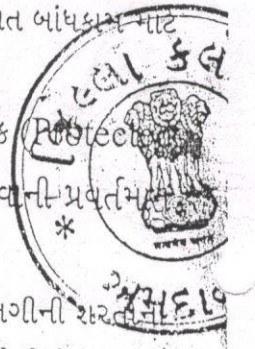 ત બાંધકામ માટે
જિલ્લા કલ
ક (Protected
વાની પ્રવર્તમાન
*
અમદાવ
ગીની શરતોની